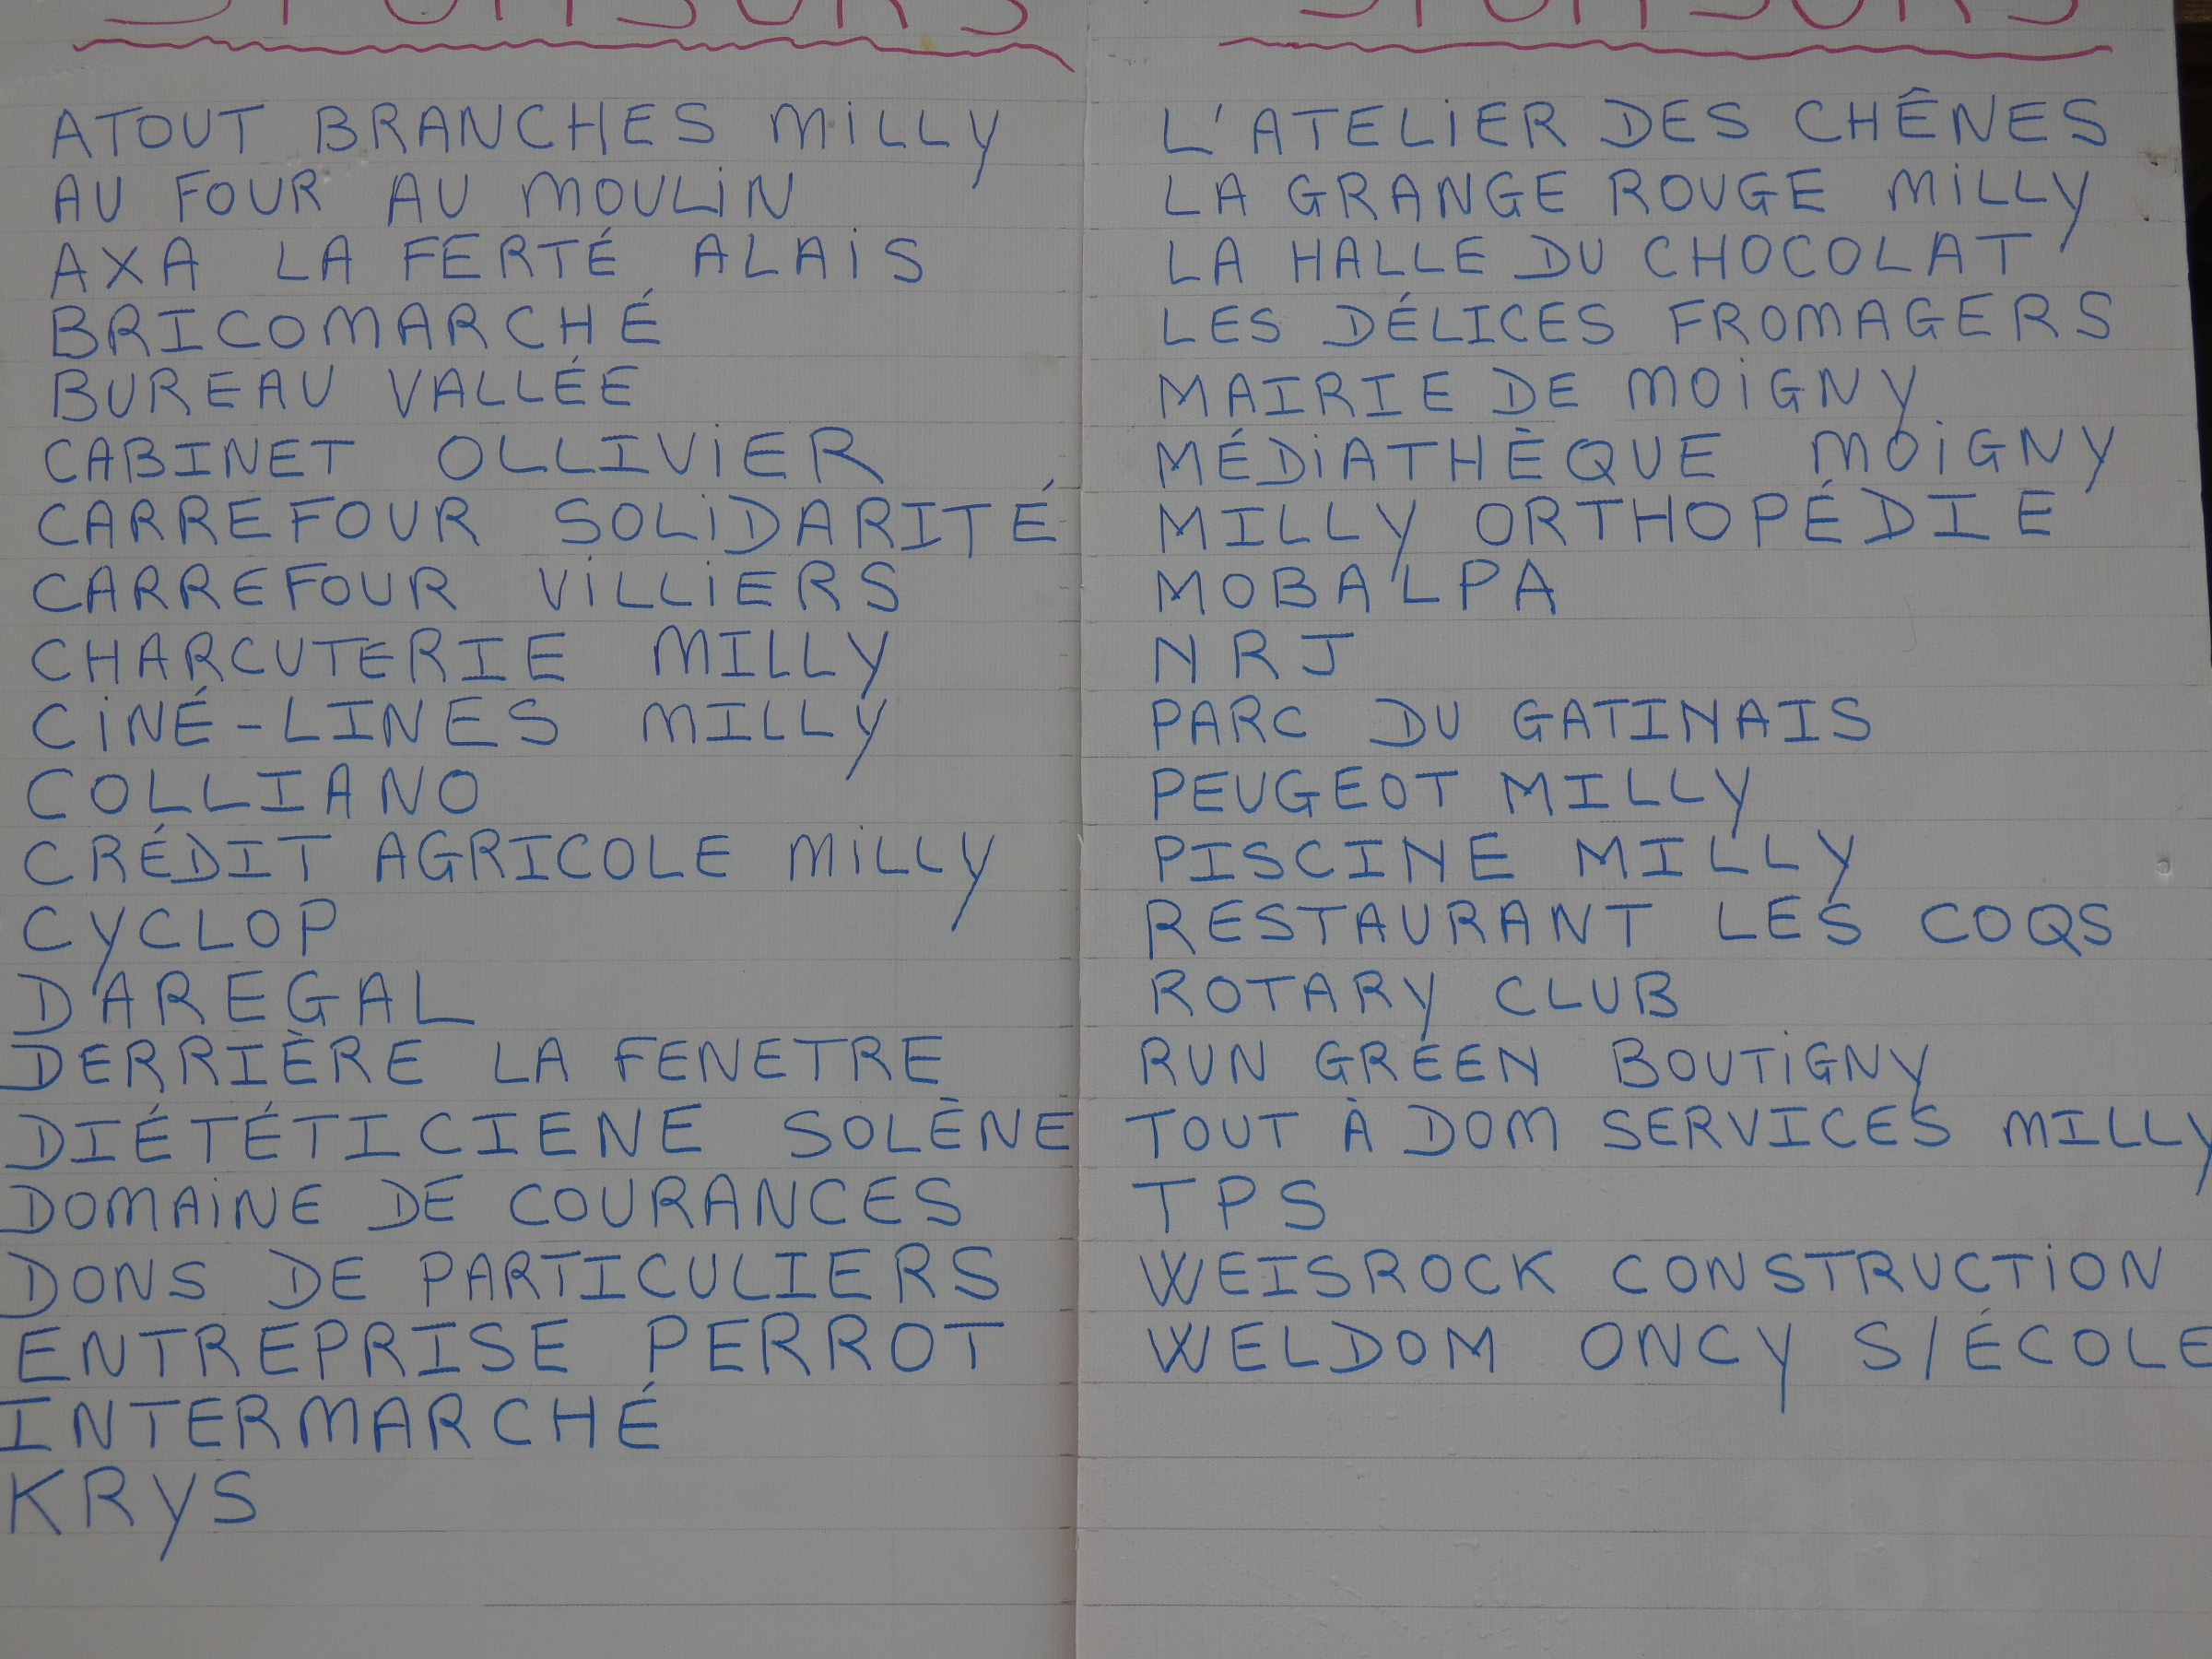 SPONSORS
ATOUT BRANCHES MILLY
AU FOUR AU MOULIN
AXA LA FERTÉ ALAIS
BRICOMARCHÉ
BUREAU VALLÉE
CABINET OLLIVIER
CARREFOUR SOLIDARITÉ
CARREFOUR VILLIERS
CHARCUTERIE MILLY
CINÉ-LINES MILLY
COLLIANO
CRÉDIT AGRICOLE MILLY
CYCLOP
DAREGAL
DERRIÈRE LA FENETRE
DIÉTÉTICIENE SOLÈNE
DOMAINE DE COURANCES
DONS DE PARTICULIERS
ENTREPRISE PERROT
INTERMARCHÉ
KRYS
SPONSORS
L'ATELIER DES CHÊNES
LA GRANGE ROUGE MILLY
LA HALLE DU CHOCOLAT
LES DÉLICES FROMAGERS
MAIRIE DE MOIGNY
MÉDIATHÈQUE MOIGNY
MILLY ORTHOPÉDIE
MOBALPA
NRJ
PARC DU GATINAIS
PEUGEOT MILLY
PISCINE MILLY
RESTAURANT LES COQS
ROTARY CLUB
RUN GREEN BOUTIGNY
TOUT À DOM SERVICES MILLY
TPS
WEISROCK CONSTRUCTION
WELDOM ONCY S/ÉCOLE